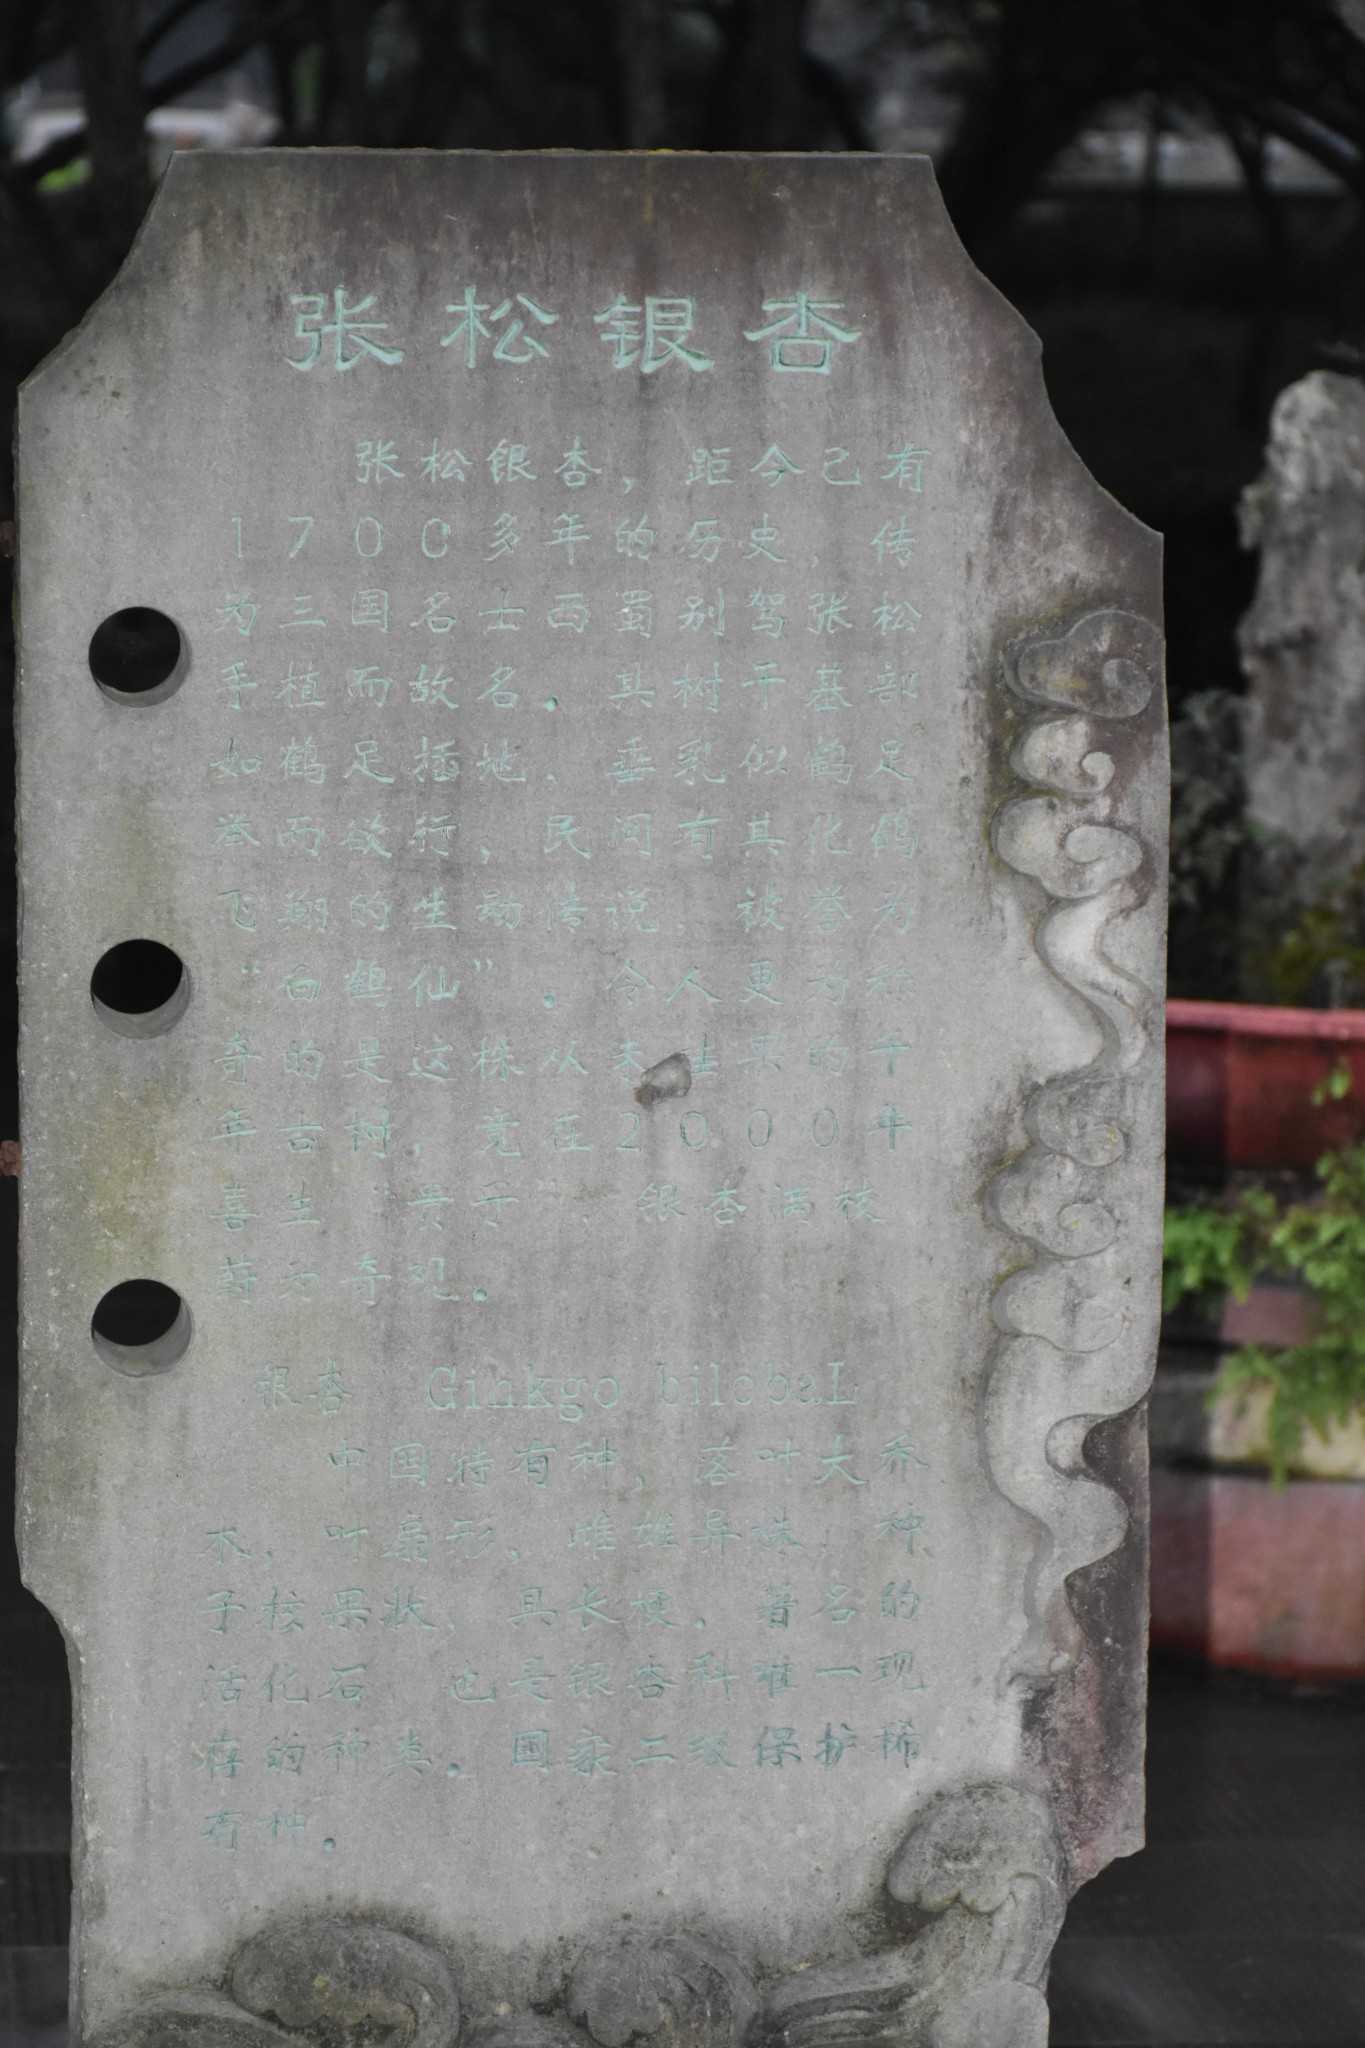 张松银杏
张松银杏，距今已有
1700多年的历史，传
为三国名士西蜀别驾张松
手植而故名。其树干基部
如鹤足插地，垂乳似鹤足
举而欲行，民间有其化鹤
飞翔的生动传说，被誉为
“白鹤仙”。令人更为称
奇的是这株从未挂果的千
年古树，竟在2000年
喜生“贵子”，银杏满枝
蔚为奇观。
银杏 Ginkgo bilobaL
中国特有种，落叶大乔
木，叶扇形，雌雄异株，种
子核果状，具长梗。著名的
活化石，也是银杏科唯一现
存的种类。国家二级保护稀
有种。